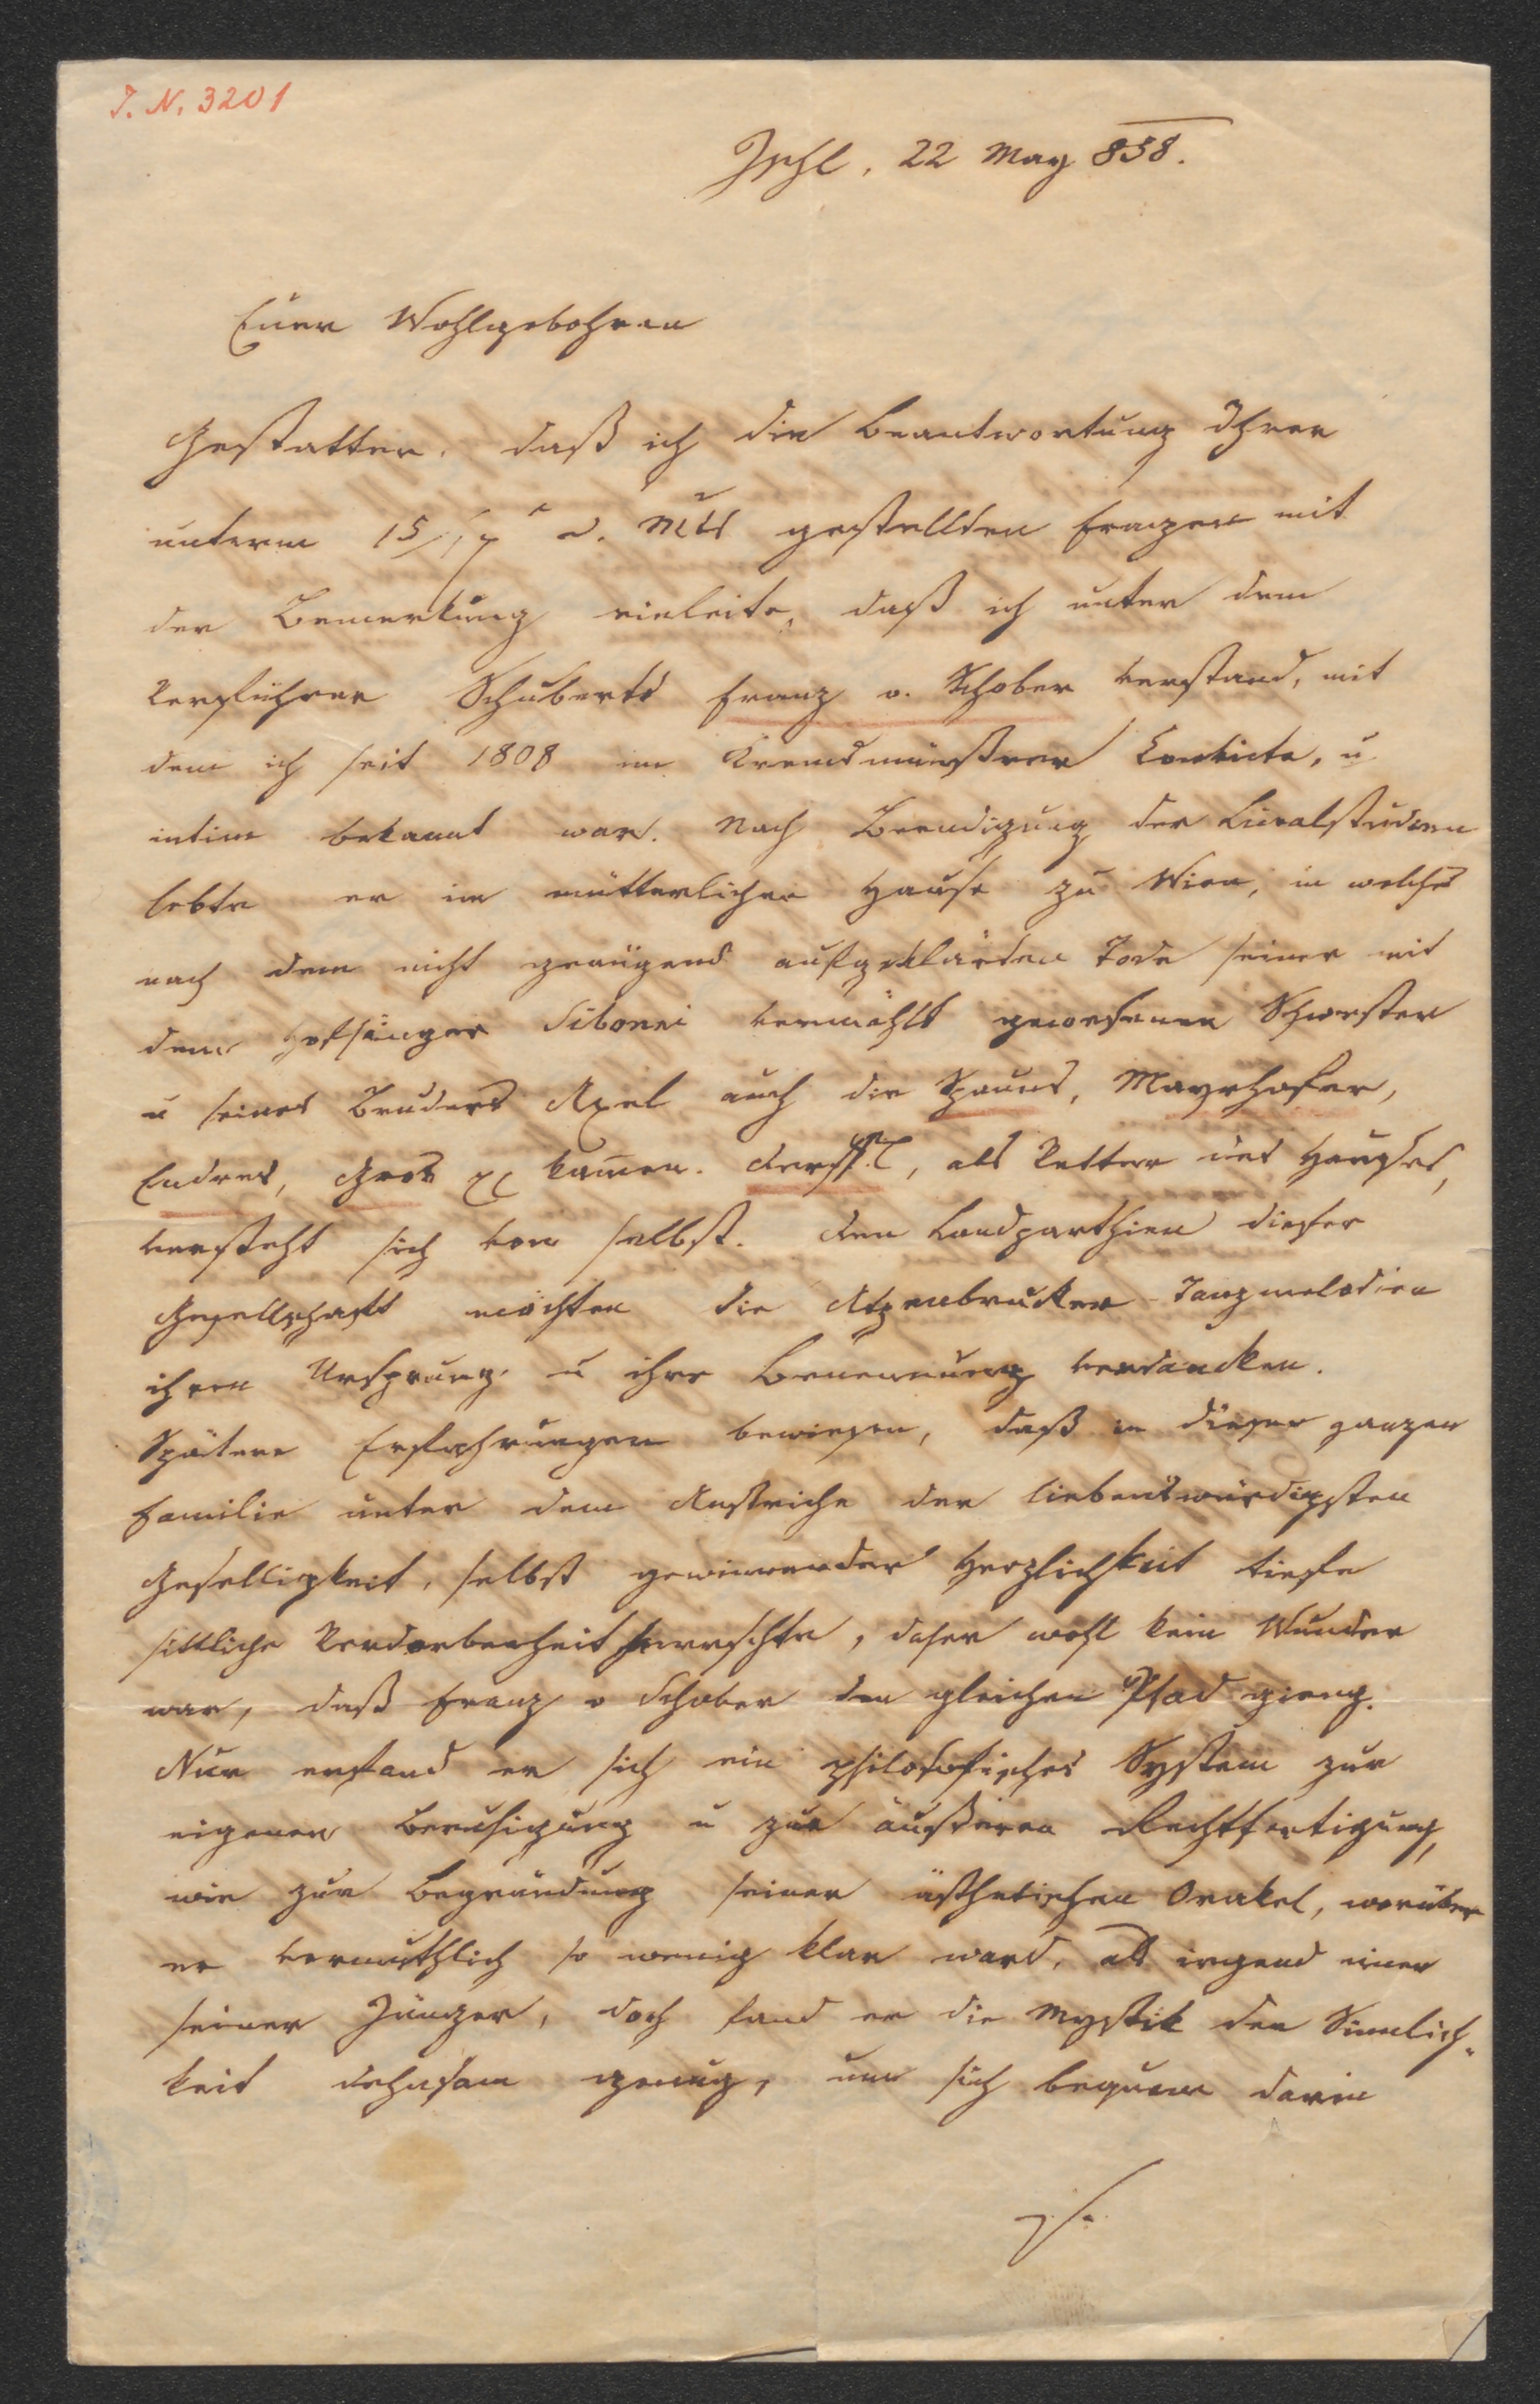 I. N. 3201
Ischl, 22 May 858.
Euer Wohlgebohren
Gestatten, daß ich die Beantwortung Ihrer
unterm 15/17 d. Mts gestellten Fragen mit
der Bemerkung einleite, daß ich unter dem
Verführer Schuberts Franz v. Schober verstand, mit
dem ich seit 1808 im Kremsmünstrer Convicte, u
intim bekannt war. Nach Beendigung der Licealstudien
lebte er im mütterlichen Hause zu Wien, in welches
nach dem nicht genügend aufgeklärten Tode seiner mit
dem Hofsänger Siboni vermählt gewesenen Schwester
u seines Bruders Axel auch die Spauns, Mayrhofer,
Endres, Gros kamen. Derffel, als Vetter des Hauses,
versteht sich von selbst. Den Landparthien dieser
Gesellschaft möchten die Atzenbrucker Tanzmelodien
ihren Ursprung u ihre Benennung verdancken.
Spätere Erfahrungen bewiesen, daß in dieser ganzen
Familie unter dem Anstriche der liebenswürdigsten
Geselligkeit, selbst gewinnender Herzlichkeit tiefe
sittliche Verdorbenheit herrschte, daher wohl kein Wunder
war, daß Franz v Schober den gleichen Pfad gieng.
Nur erfand er sich ein philosofisches System zur
eigenen Beruhigung u zur äußeren Rechtfertigung,
wie zur Begründung seiner ästhetischen Orakel, worüber
er vermuthlich so wenig klar ward, als irgend einer
seiner Jünger, doch fand er die Mystik der Sinnlich-
keit dehnsam genug, um sich bequem darin